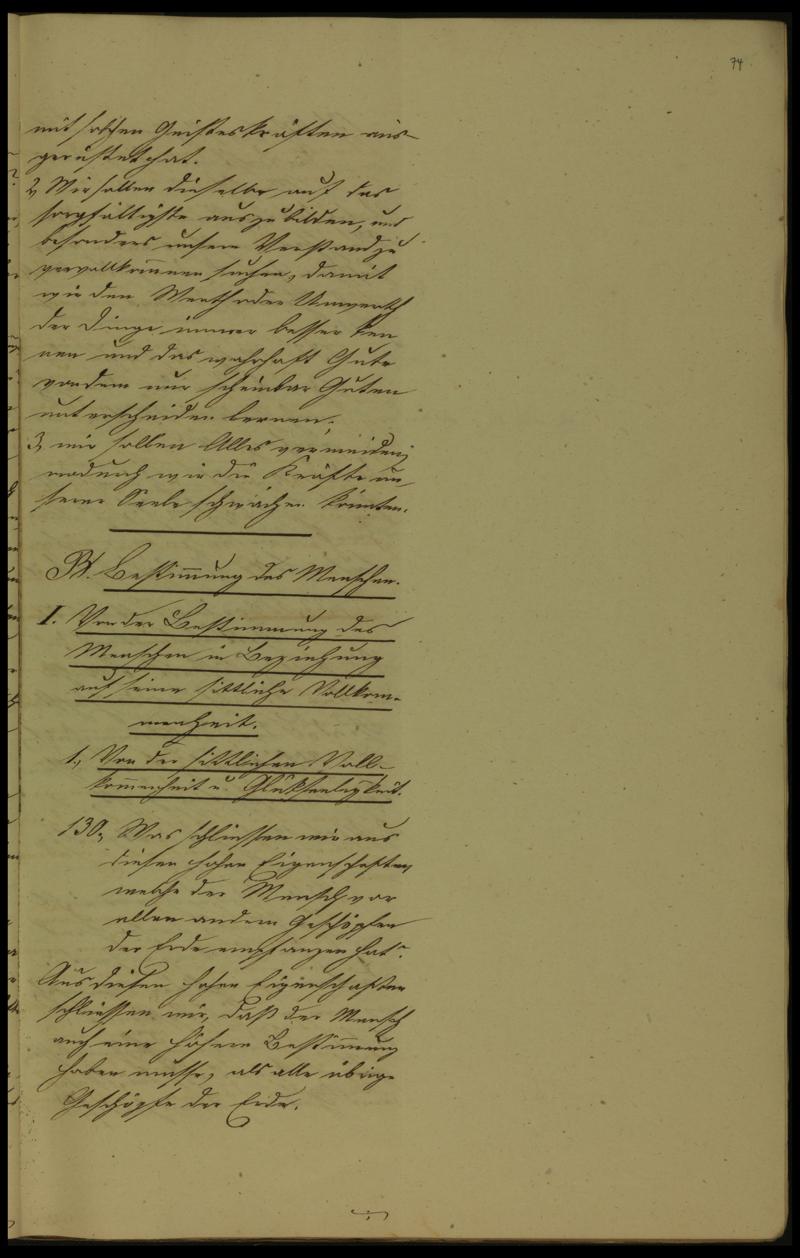 74
mit solchen Geisteskräften aus-
gerüstet hat.
2, Wir sollen dieselbe auf das
sorgfältigste auszubilden, und
besonders unsern Verstand zu
vervollkom̅nen suchen, damit
wir den Werth oder Unwerth
der Dinge immer besser ken
nen und das wahrhaft Gute
von dem nur scheinbar Guten
unterscheiden lernen;
3, wir sollen Alles vermeiden,
wodurch wir die Kräfte un
serer Seele schwächen könnten.
Bestim̅ung des Menschen.
I. Von der Bestimmung des
Menschen in Beziehung
auf seine sittliche Vollkom-
menheit.
1., Von der sittlichen Voll-
kom̅enheit u. Glückseeligkeit.
130, Was schliessen wir aus
diesen hohen Eigenschaften,
welche der Mensch vor
allen andern Geschöpfen
der Erde empfangen hat?
Aus diesen hohen Eigenschaften
schliessen wir, daß der Mensch
auch eine höhere Bestim̅ung
haben müsse, als alle übrige
Geschöpfe der Erde.